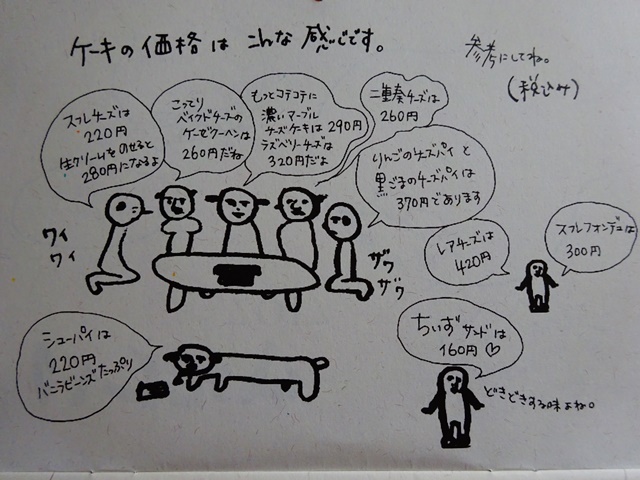 ケーキの価格は こんな 感じです。
参考にしてね。
(税込み)
スフレチーズは
220円
生クリームをのせると
280円になるよ
こってり
ベイクドチーズの
ケーゼクーヘンは
260円だね
もっとコテコテに
濃いマーブル
チーズケーキは 290円
ラズベリーチーズは
320円だよ
二重奏チーズは
260円
りんごのチーズパイと
黒ごまのチーズパイは
370円であります
レアチーズは
420円
スフレフォンデュは
300円
ワイ
ワイ
ザワ
ザワ
シューパイは
220円
バニラビーンズたっぷり
ちぃずサンドは
160円♡
どきどきする味よね。